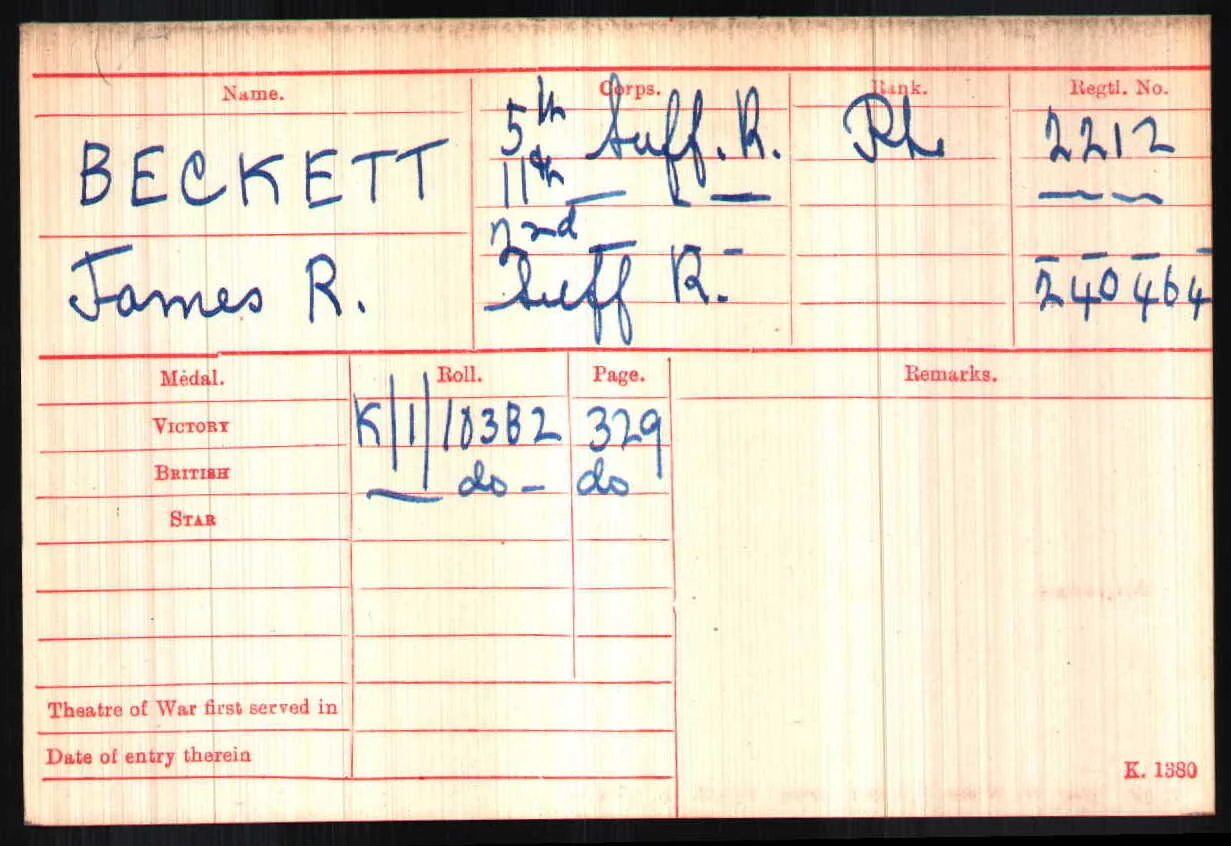 Name. Corps. Rank. Regtl. No.
BECKETT 5th Suff. R. Pte 2212
11th — „ — — —
2nd
James R. Suff R. 240464
Medal. Roll. Page. Remarks.
VICTORY K/1/103B2 329
BRITISH — do — do
STAR
Theatre of War first served in
Date of entry therein
K. 1380